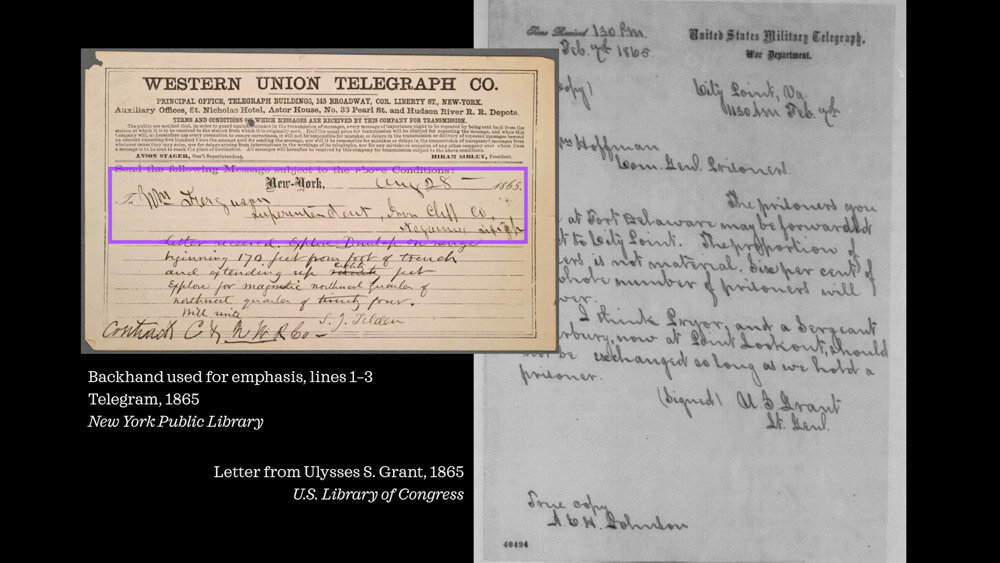 WESTERN UNION TELEGRAPH CO.
PRINCIPAL OFFICE, TELEGRAPH BUILDINGS, 145 BROADWAY, COR. LIBERTY ST., NEW-YORK.
Auxiliary Offices, St. Nicholas Hotel, Astor House, No. 33 Pearl St. and Hudson River R. R. Depots.
TERMS AND CONDITIONS ON WHICH MESSAGES ARE RECEIVED BY THIS COMPANY FOR TRANSMISSION.
ANSON STAGER, Gen'l Superintendent,
HIRAM SIBLEY, President.
Send the following Message subject to the above Conditions:
New-York, Aug 28 1865.
To Wm Ferguson
Superintendent, Iron Cliff Co,
Negaunee
Letter received. Explore Dunlop on range
beginning 170 feet from foot of trench
and extending up feet
Explore for magnetic northwest quarter of
northwest quarter of twenty four.
Will write
S. J. Tilden
Contracts C & N W R Co
Backhand used for emphasis, lines 1–3
Telegram, 1865
New York Public Library
Letter from Ulysses S. Grant, 1865
U.S. Library of Congress
Time Received 130 Pm
Feb. 7th 1865.
United States Military Telegraph,
War Department.
opy)
City Point, Va
Feb 7th
Hoffman
Com. Genl. Prisoners.
The prisoners you
at Fort Delaware may be forwarded
t to City Point. The proportion of
ers is not material. Six per cent of
whole number of prisoners will
ver.
I think Pryor, and a Sergeant
bury, now at Point Lookout, should
not be exchanged so long as we hold a
prisoner.
(Signed) U S Grant
Lt. Genl.
True copy
A E H Johnson
40494